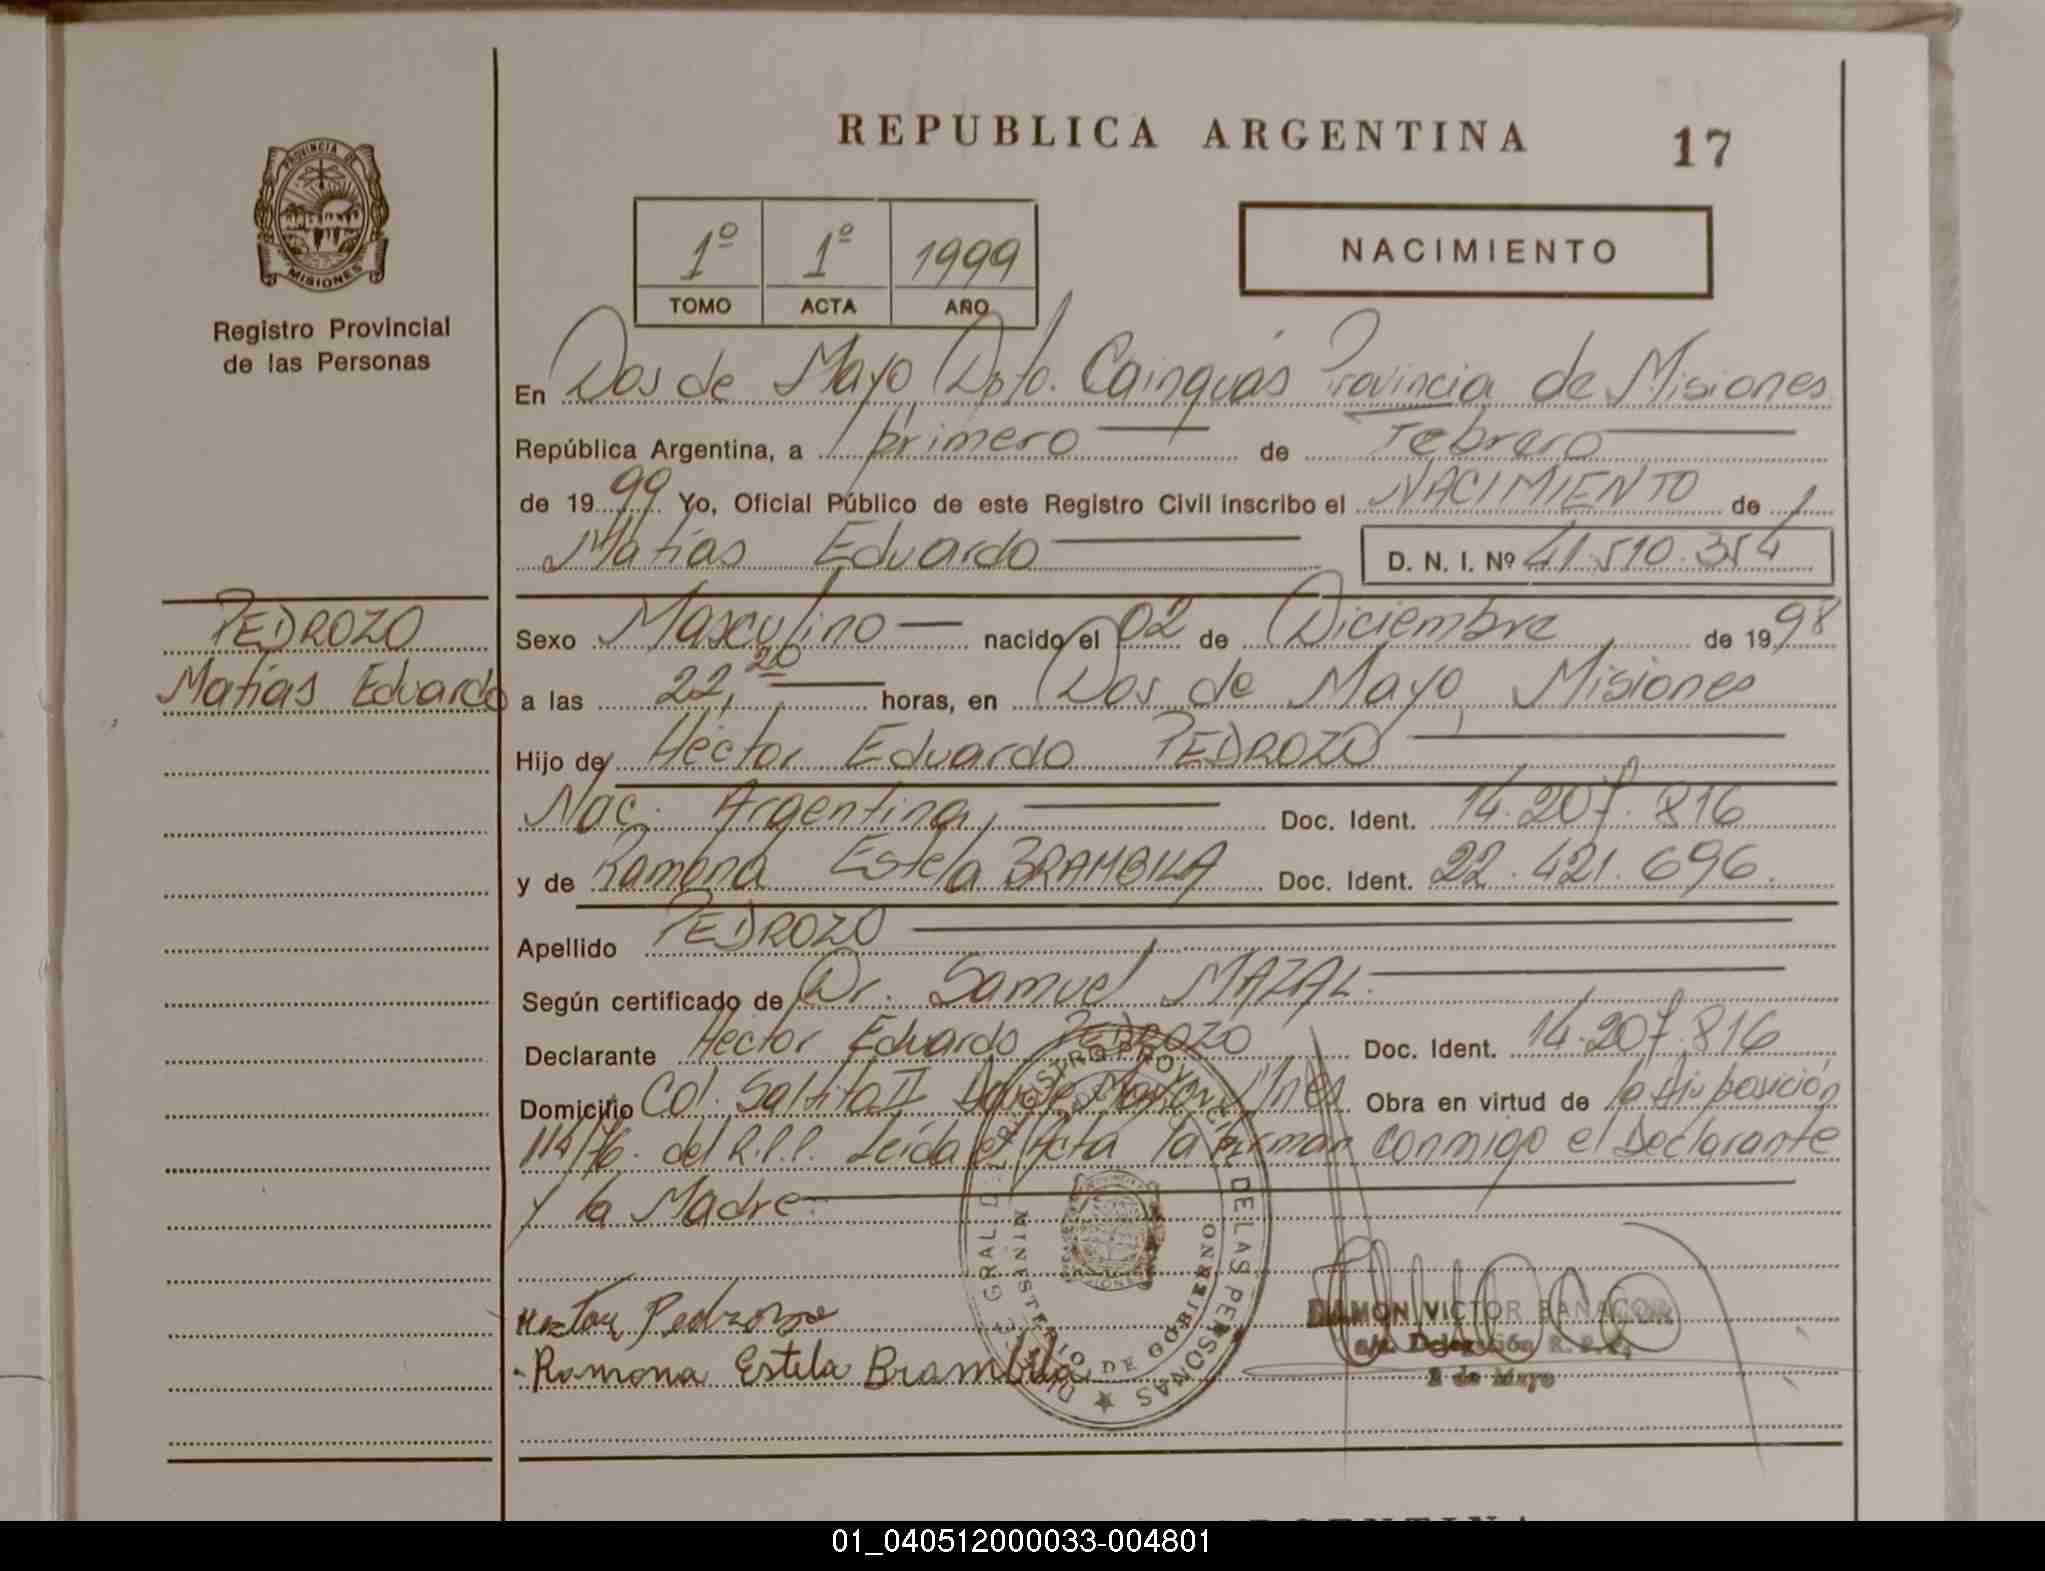 REPUBLICA ARGENTINA
17
PROVINCIA DE
MISIONES
Registro Provincial
de las Personas
1º 1º 1999
TOMO ACTA AÑO
NACIMIENTO
En Dos de Mayo Dpto. Cainguás Provincia de Misiones
República Argentina, a primero de Febrero
de 1999 Yo, Oficial Público de este Registro Civil inscribo el NACIMIENTO de
Matías Eduardo D. N. I. Nº 41.510.354
PEDROZO
Matías Eduardo
Sexo Masculino nacido el 02 de Diciembre de 1998
a las 22,20 horas, en Dos de Mayo, Misiones
Hijo de Héctor Eduardo PEDROZO
Nac. Argentina, Doc. Ident. 14.207.816
y de Ramona Estela BRAMBILA Doc. Ident. 22.421.696.
Apellido PEDROZO
Según certificado de Dr. Samuel MAZAL.
Declarante Héctor Eduardo PEDROZO Doc. Ident. 14.207.816
Domicilio Col. Saltito II Dos de Mayo Mnes Obra en virtud de la disposición
114/76. del R.P.P. Leída el Acta la firman conmigo el Declarante
y la Madre.
DIREC. GRAL. DEL REGISTRO PROVINCIAL DE LAS PERSONAS
MINISTERIO DE GOBIERNO
Hector Pedrozo
Ramona Estela Brambila
RAMON VICTOR BANACOR
a/c. Delegación R. P. P.
2 de Mayo
ARGENTINA
01_040512000033-004801